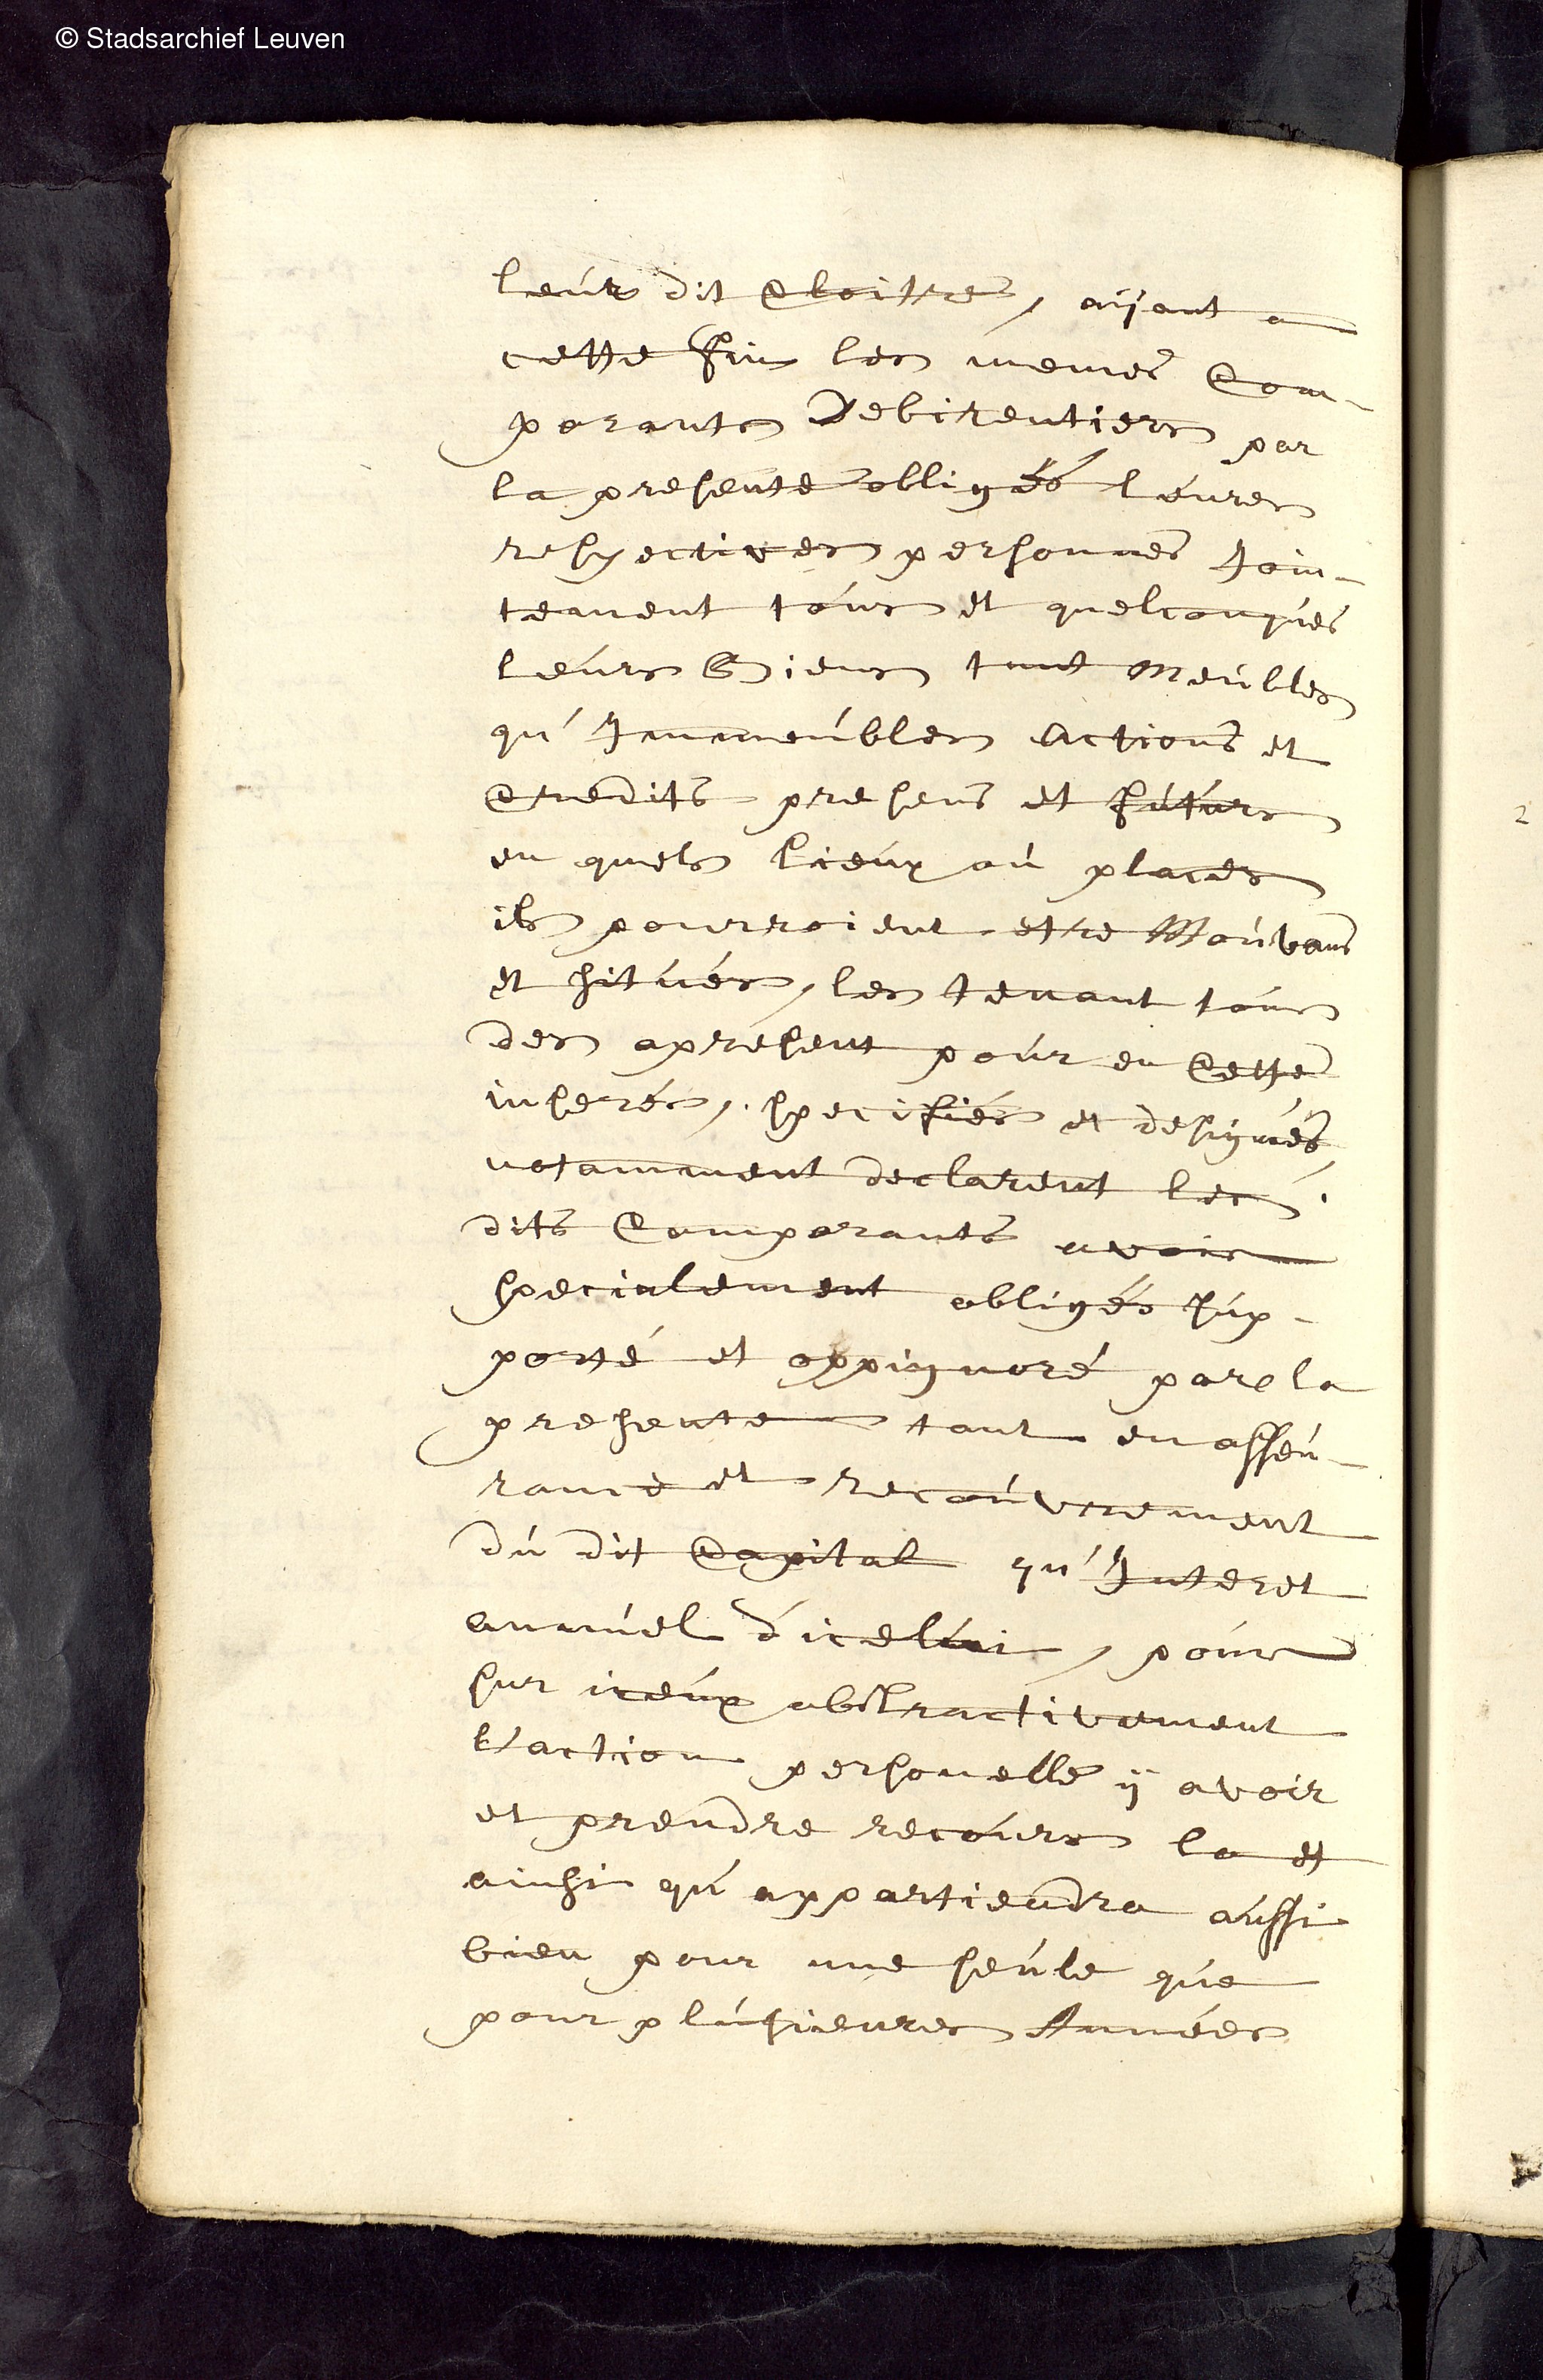 © Stadsarchief Leuven
leur dit Cloittre, aijant a
cette fin les memes Com-
parants Debirentiers par
la presente obligéé leures
respectives personnes Join-
tement tous et quelconques
leurs Biens tant Meubles
qu'Immeubles Actions et
Credits presens et futurs
en quels lieux ou places
ils pourroient etre Mouvans
et situés, les tenant tous
des apresent pour en Cette
inserés, specifiés et designés
notamment declarent les
dits Comparants avoir
specialement obligés sup-
porté et oppignoré pare la
presente tant en asseu-
rance et recouvrement
du dit Capital qu'Interet
annuel d'icelui, pour
sur iceux abstractivement
l'action personelle ij avoir
et prendre recours la et
ainsi qu'appartiendra aussi
bien pour une seule que
pour plusieures Années